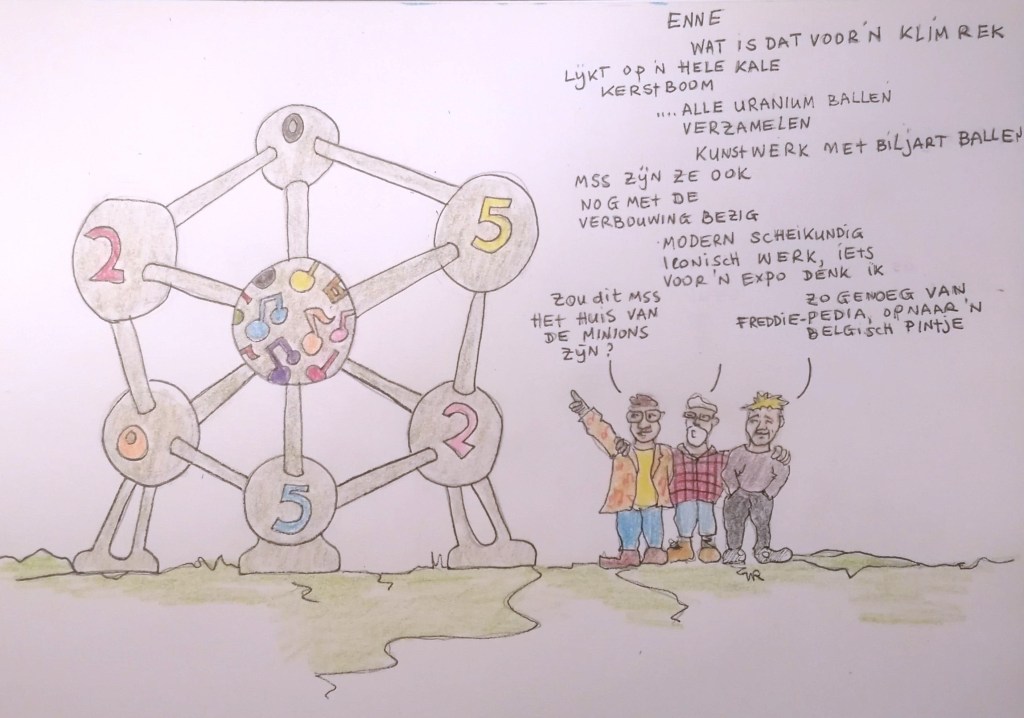 ENNE
WAT IS DAT VOOR'N KLIMREK
LIJKT OP'N HELE KALE
KERSTBOOM
.... ALLE URANIUM BALLEN
VERZAMELEN
KUNSTWERK MET BILJART BALLEN
MSS ZIJN ZE OOK
NOG MET DE
VERBOUWING BEZIG
MODERN SCHEIKUNDIG
ICONISCH WERK, IETS
VOOR'N EXPO DENK IK
ZOU DIT MSS
HET HUIS VAN
DE MINIONS
ZIJN?
ZO GENOEG VAN
FREDDIE-PEDIA, OPNAAR'N
BELGISCH PINTJE
0
2
5
0
5
2